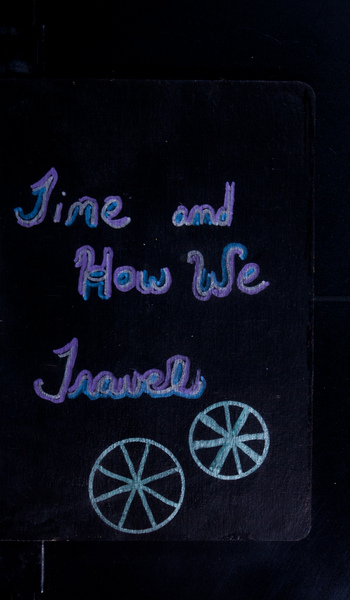 Time and
How We
Travel